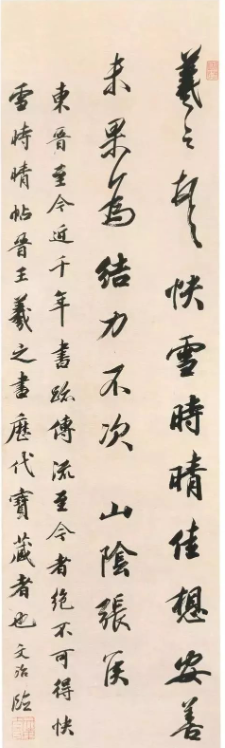 羲之頓首快雪時晴佳想安善
未果為結力不次山陰張侯
東晉至今近千年書跡傳流至今者絕不可得快
雪時晴帖晉王羲之書歷代寶藏者也文治臨